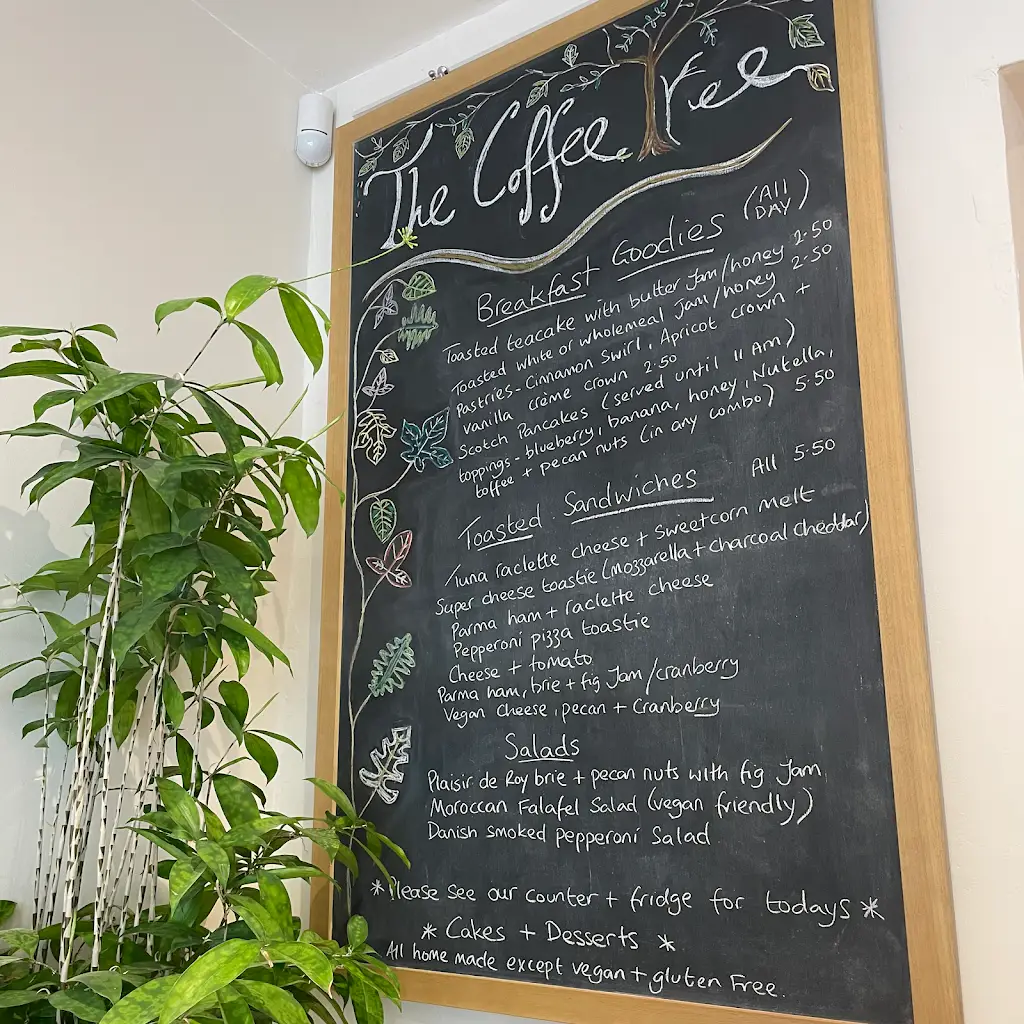 The Coffee Tree
Breakfast Goodies (All DAY)
Toasted teacake with butter Jam/honey 2.50
Toasted white or wholemeal Jam/honey 2.50
Pastries - Cinnamon Swirl, Apricot crown +
vanilla crème crown 2.50
Scotch Pancakes (served until 11 Am)
toppings - blueberry, banana, honey, Nutella,
toffee + pecan nuts (in any combo) 5.50
Toasted Sandwiches All 5.50
Tuna raclette cheese + sweetcorn melt
Super cheese toastie (mozzarella + charcoal cheddar)
Parma ham + raclette cheese
Pepperoni pizza toastie
Cheese + tomato
Parma ham, brie + fig Jam/cranberry
Vegan cheese, pecan + Cranberry
Salads
Plaisir de Roy brie + pecan nuts with fig Jam
Moroccan Falafel Salad (vegan friendly)
Danish smoked pepperoni Salad
* Please see our counter + fridge for todays *
* Cakes + Desserts *
All home made except vegan + gluten Free.